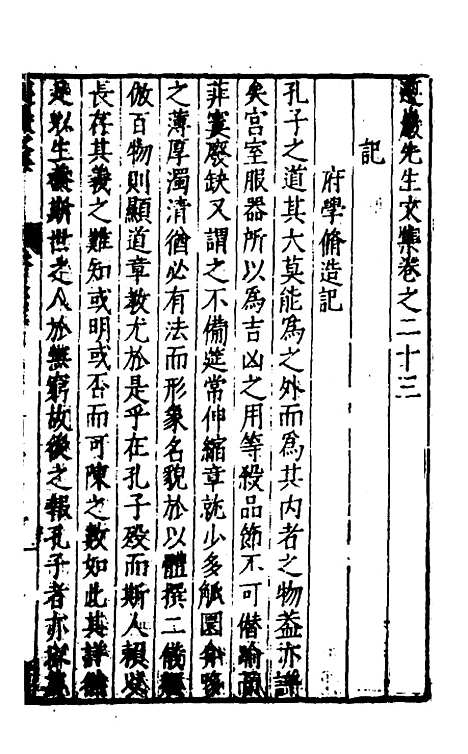 遵巖先生文集卷之二十三
記
府學脩造記
孔子之道其大莫能為之外而為其内者之物葢亦詳
矣宮室服器所以為吉凶之用等殺品節不可僭踰而
菲宴廢缺又謂之不備筵常伸縮章就少多觚圓
之薄厚濁清猶必有法而形象名貌於以體撰二儀
倣百物則顯道章敎尤於是乎在孔子殁而斯人賴以
長存其義之難知或明或否而可陳之數如此其詳
是以生斯世之人於無窮故後之報孔子者亦